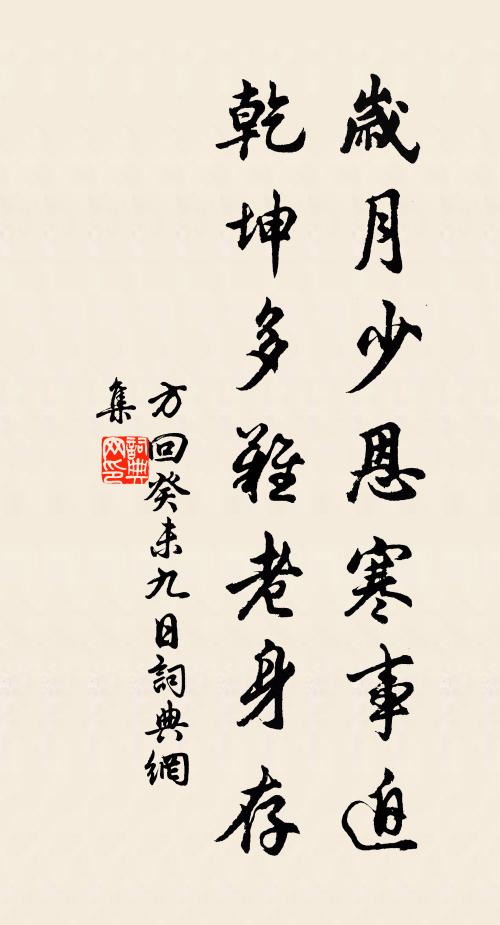 歲月少恩寒事迫
乾坤多難老身存
方回癸未九日詞典網
集
詞典網印